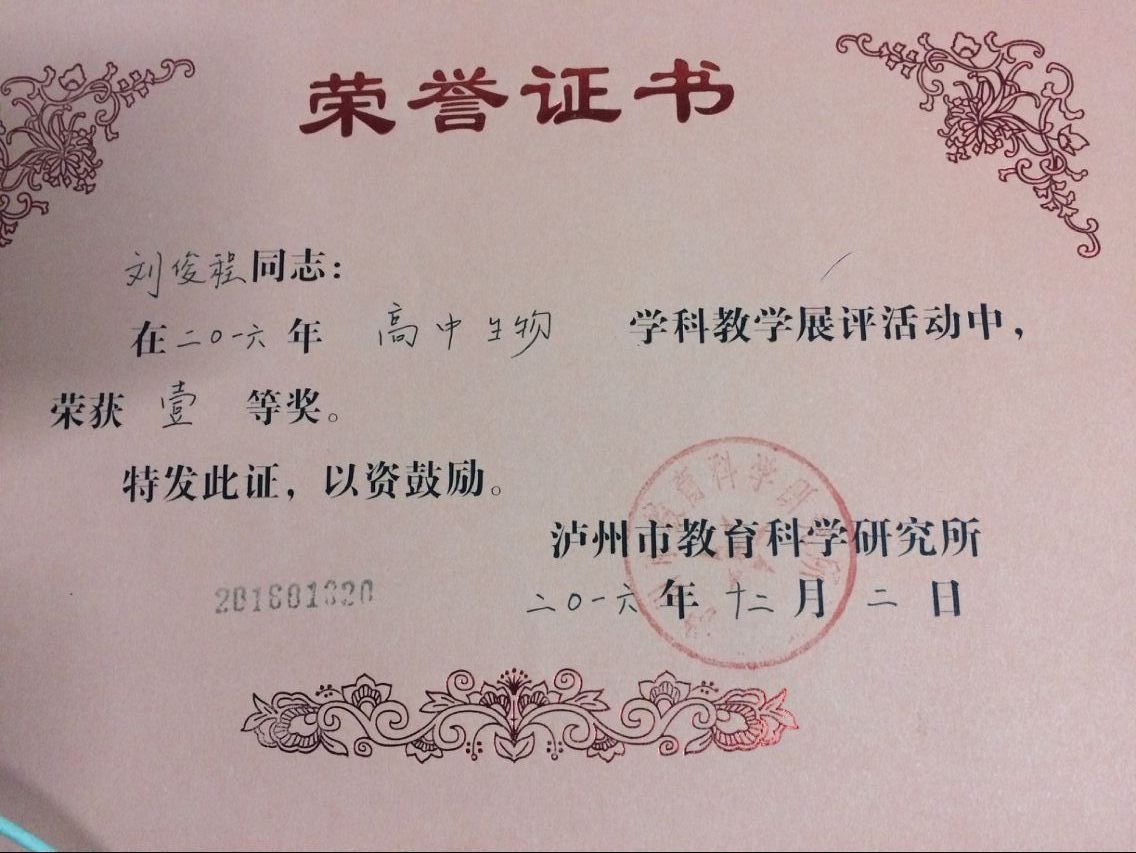 荣誉证书
刘俊程同志：
在二〇一六年 高中生物 学科教学展评活动中，
荣获 壹 等奖。
特发此证，以资鼓励。
泸州市教育科学研究所
二〇一六年十二月二日
201601320